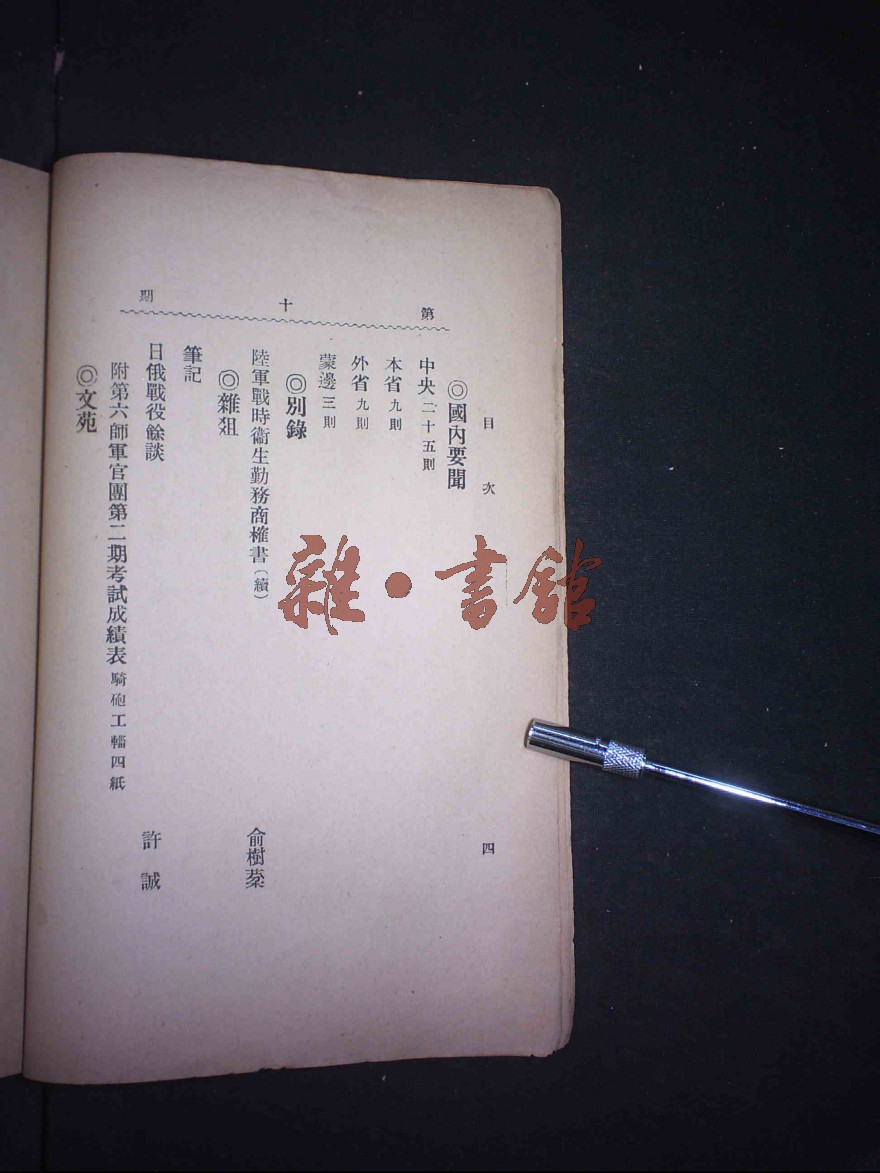 第十期
目次 四
◎國內要聞
中央二十五則
本省九則
外省九則
蒙邊三則
◎別錄
陸軍戰時衞生勤務商榷書(續) 俞樹棻
◎雜俎
筆記
日俄戰役餘談 許誠
附第六師軍官團第二期考試成績表騎砲工輜四紙
◎文苑
雜·書館